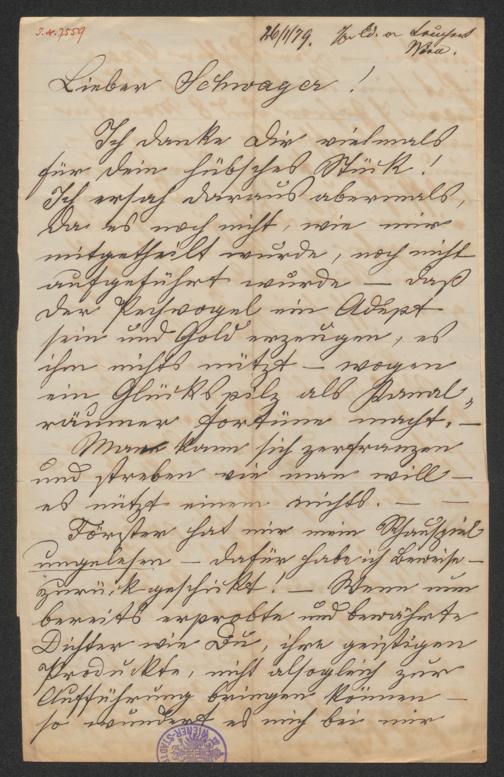 I.N.7559
26/1/79.
Lieber Schwager!
Ich danke Dir vielmals
für dein hübsches Stück!
Ich ersah daraus abermals,
da es noch nicht, wie mir
mitgetheilt wurde, noch nicht
aufgeführt wurde — daß
der Pechvogel ein Adept
sein und Gold erzeugen, es
ihm nichts nützt — wogen
ein Glückspilz als Kanal-
räumer fortüne macht. —
Man kann sich zerfranzen
und streben wie man will —
es nützt einem nichts. — —
Förster hat mir mein Schauspiel
ungelesen — dafür habe ich Beweise —
zurückgeschickt! — Wenn nun
bereits erprobte und bewährte
Dichter wie Du, ihre geistigen
Produkte, nicht alsogleich zur
Aufführung bringen können —
so wundert es mich bei mir
WIENER STADT